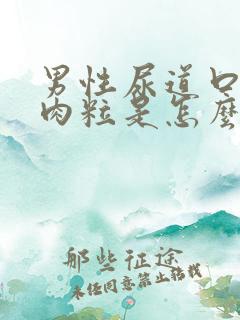 男性尿道口
肉粒是怎麼
那些征途
未经同意禁止转载